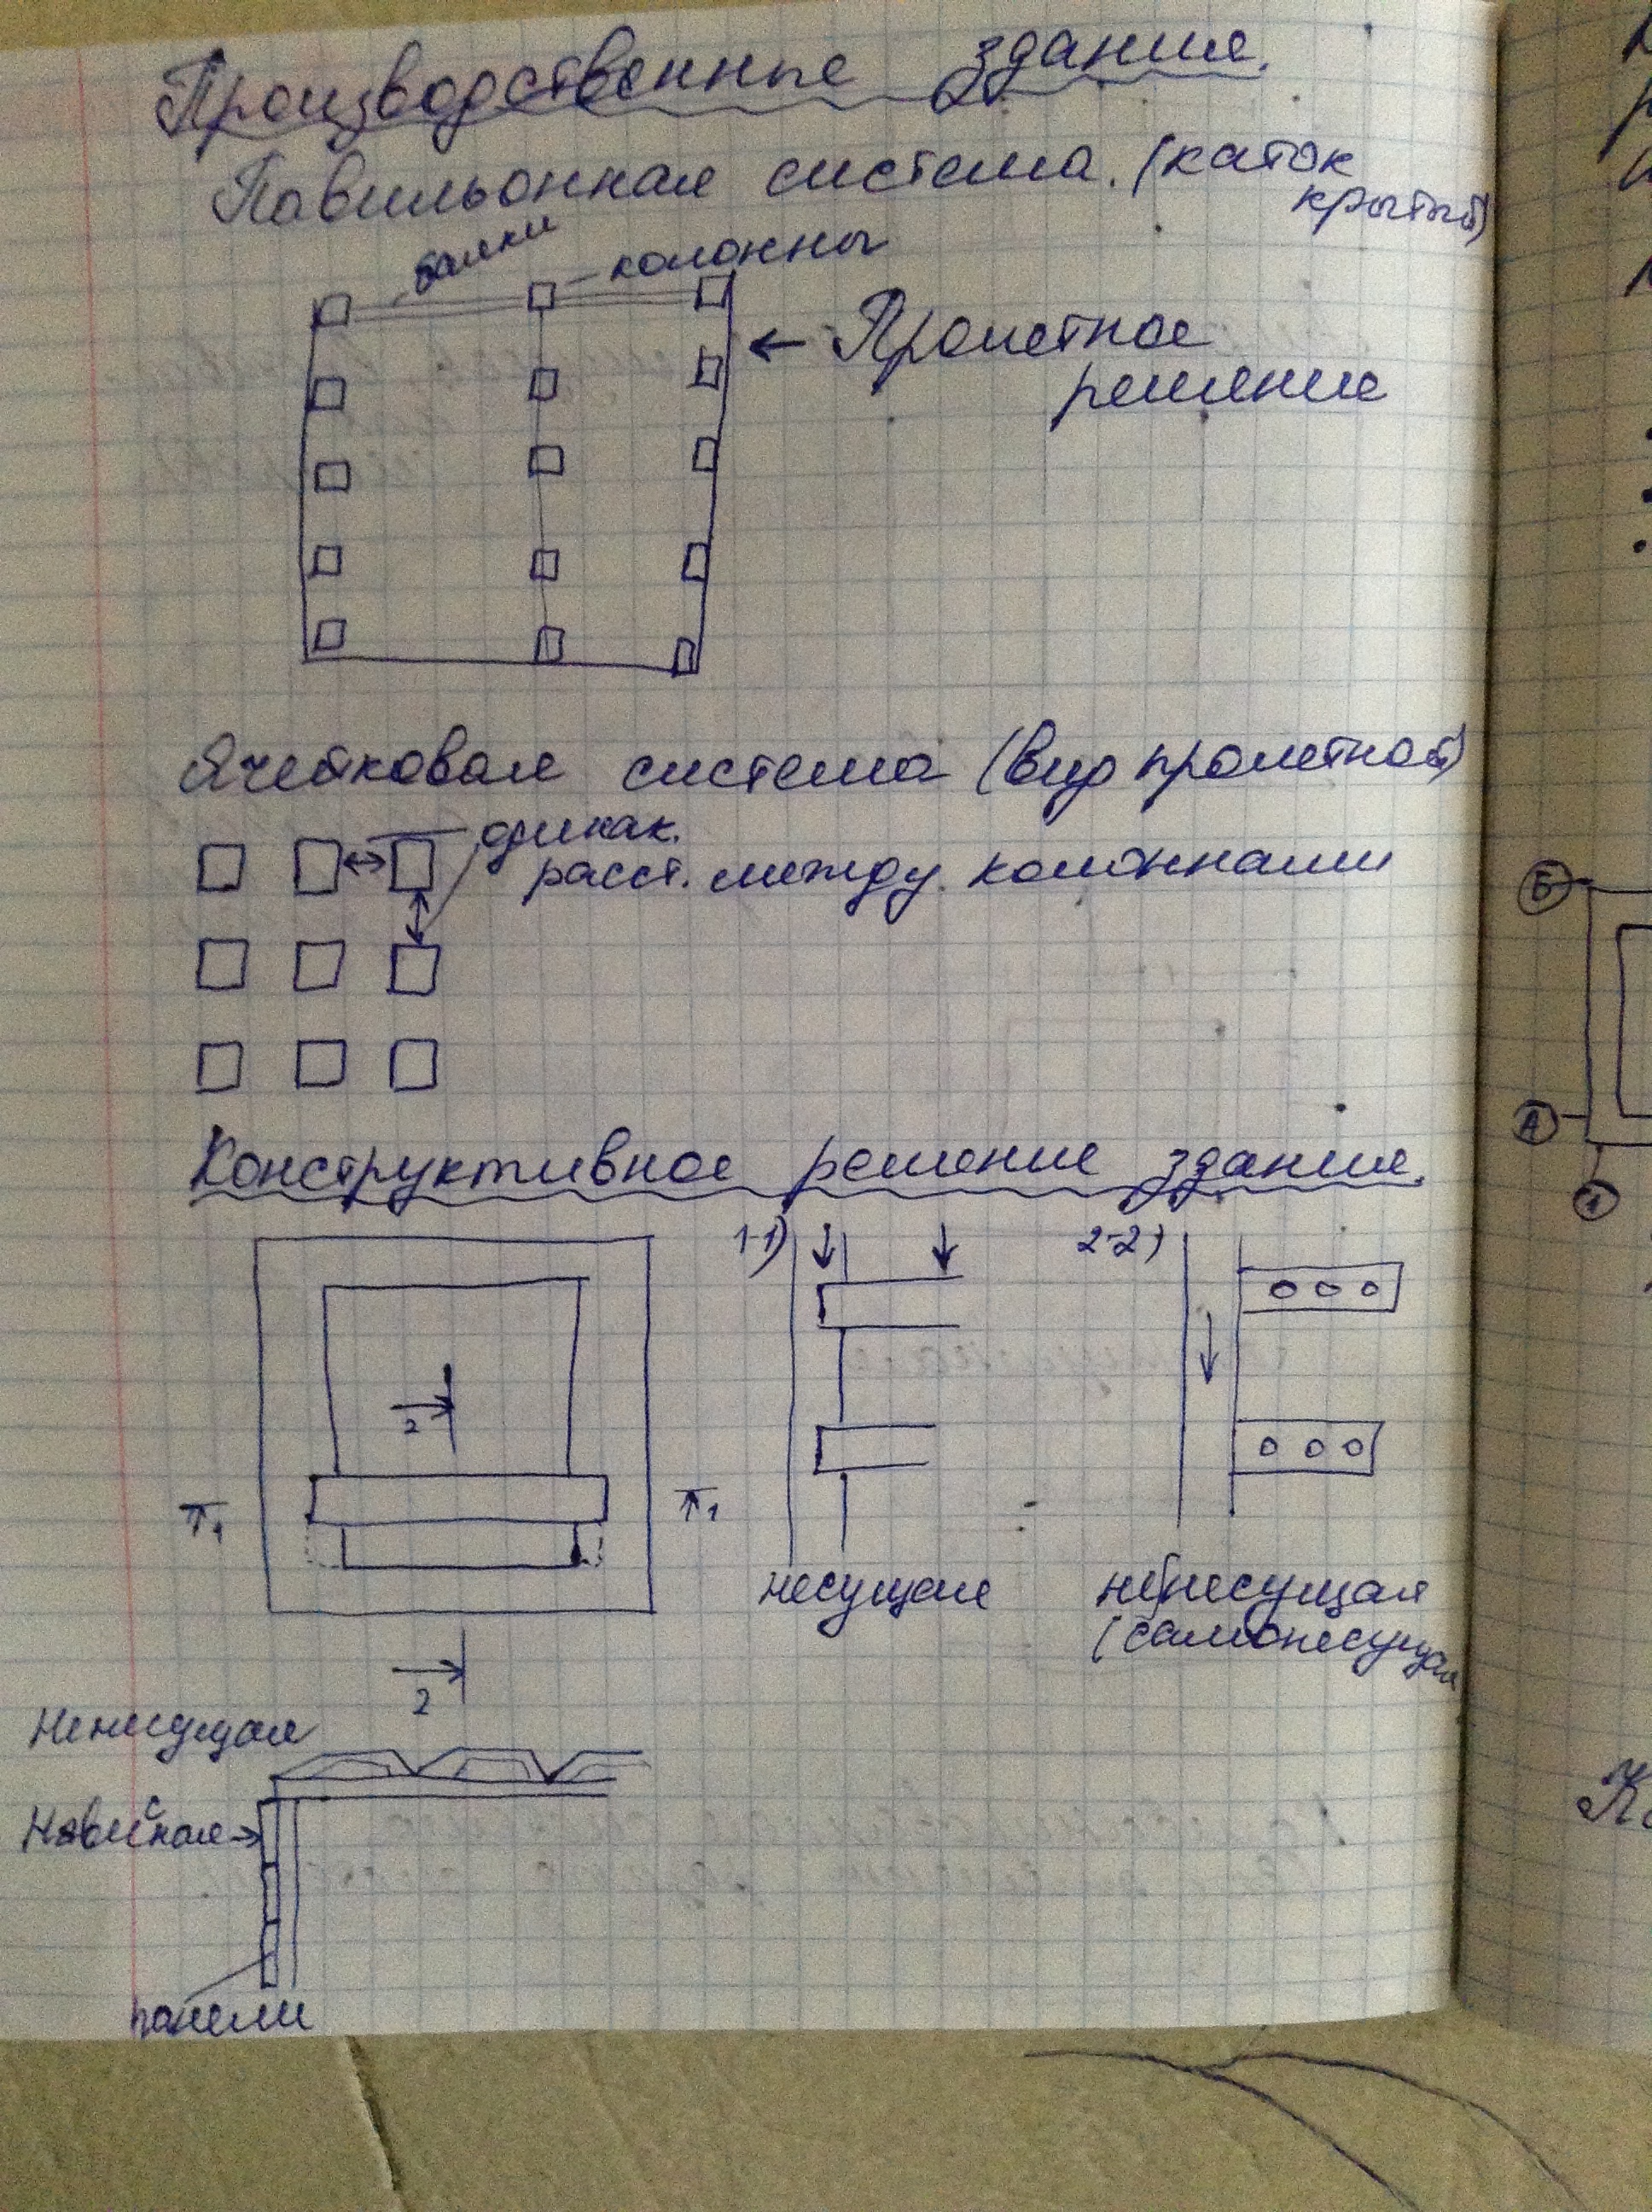 Производственные здания.
Павильонная система. (каток
крытый)
балки
колонны
← Пролетное
решение
Ячейковая система (вид пролетной)
одинак.
расст. между колоннами
Конструктивное решение здания.
1-1)
2-2)
2
1
1
несущая
ненесущая
(самонесущая
2
Ненесущая
Навесная
панели
Б
А
1